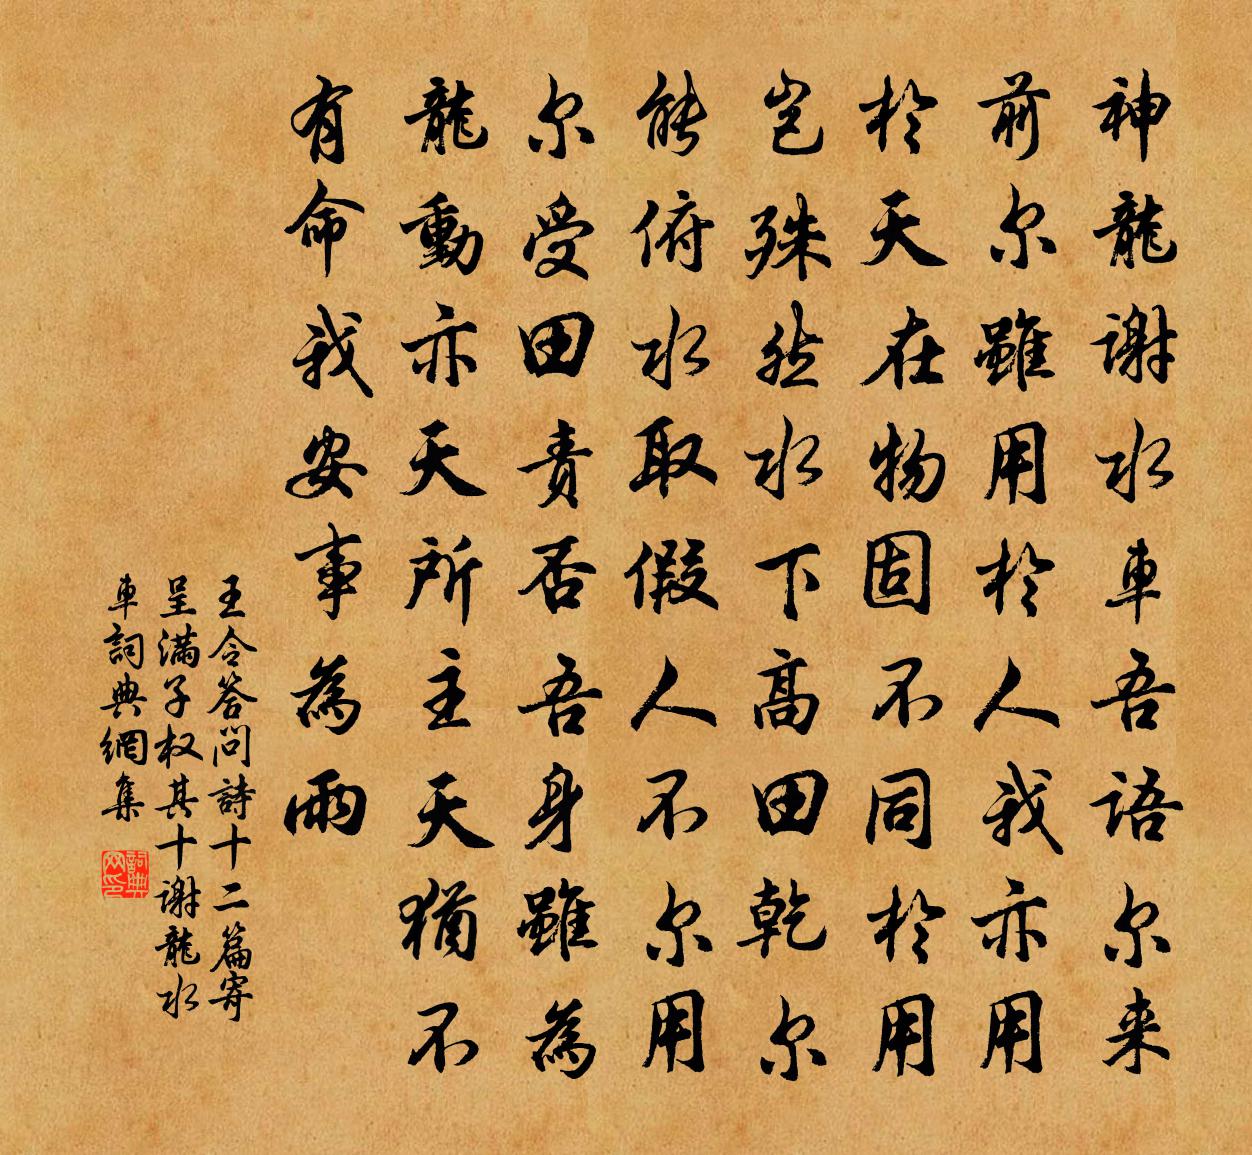 神龍謝水車吾語尔来
前尔雖用於人我亦用
於天在物固不同於用
岂殊然水下高田乾尔
能俯水取假人不尔用
尔受田責否吾身雖為
龍動亦天所主天猶不
有命我安事為雨
王令答問詩十二篇寄
呈満子权其十謝龍水
車詞典網集
詞典
网印